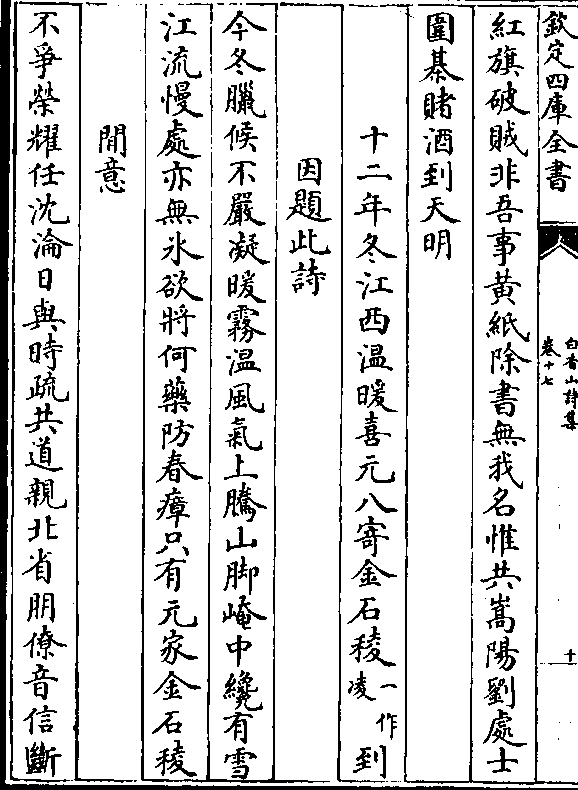 欽定四庫全書
白香山詩集
卷十七
十
紅旗破賊非吾事黄紙除書無我名惟共嵩陽劉處士
圍棊賭酒到天明
十二年冬江西温暖喜元八寄金石稜一作凌到
因題此詩
今冬臘候不嚴凝暖霧温風氣上騰山脚崦中纔有雪
江流慢處亦無氷欲將何藥防春瘴只有元家金石稜
閒意
不爭榮耀任沈淪日與時疏共道親北省朋僚音信斷